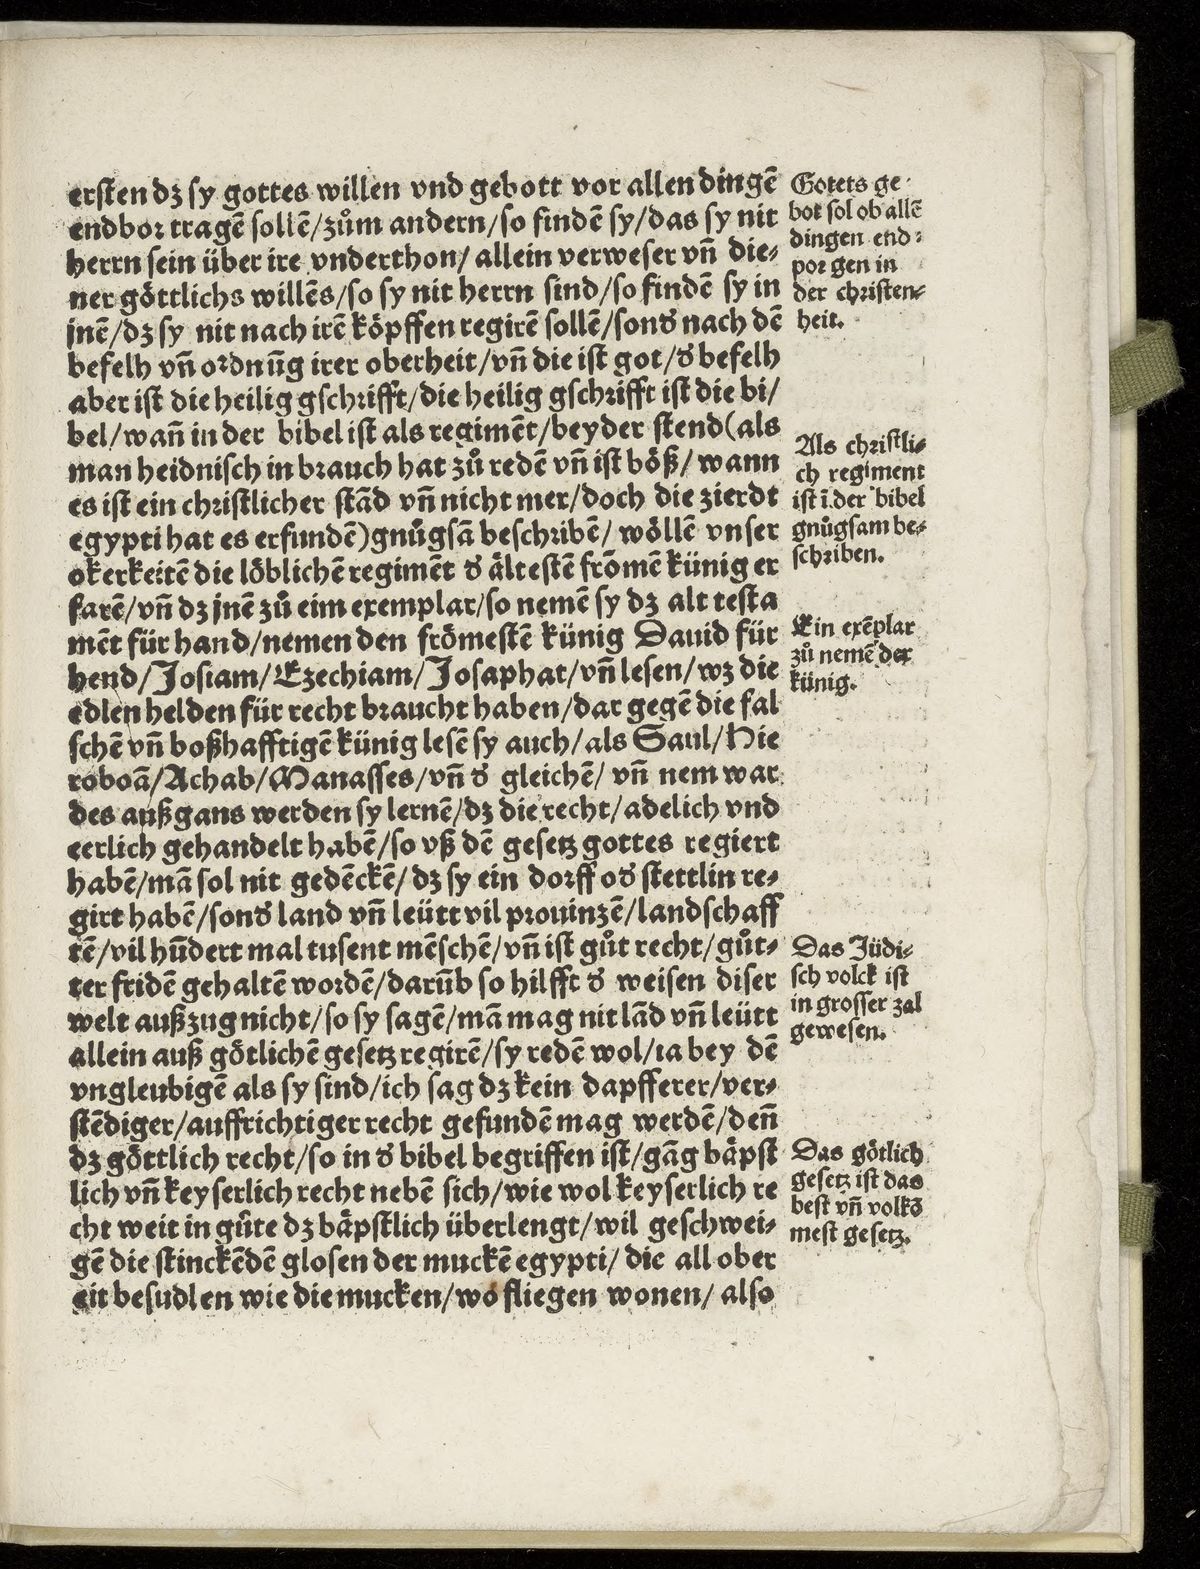 ersten dꝫ sy gottes willen vnd gebott vor allen dingē
endbor tragē sollē/zům andern/so findē sy/das sy nit
herrn sein über ire vnderthon/ allein verweser vñ die⸗
ner göttlichs willēs/so sy nit herrn sind/so findē sy in
jnē/dꝫ sy nit nach irē köpffen regirē sollē/sonď nach dē
befelh vñ ordnūg irer oberheit/vñ die ist got/ď befelh
aber ist die heilig gschrifft/die heilig gschrifft ist die bi/
bel/wañ in der bibel ist als regimēt/beyder stend(als
man heidnisch in brauch hat zů redē vñ ist böß/ wann
es ist ein christlicher stād vñ nicht mer/doch die zierdt
egypti hat es erfundē)gnůgsā beschribē/ wöllē vnser
okerkeitē die löblichē regimēt ď ältestē frōmē künig er
farē/vñ dꝫ jnē zů eim exemplar/so nemē sy dꝫ alt testa
mēt für hand/nemen den frömestē künig Dauid für
hend/Josiam/Ezechiam/Josaphat/vñ lesen/wꝫ die
edlen helden für recht braucht haben/dar gegē die fal
schē vñ boßhafftigē künig lesē sy auch/als Saul/Hie
roboā/Achab/Manasses/vñ ď gleichē/ vñ nem war
des außgans werden sy lernē/dꝫ die recht/adelich vnd
eerlich gehandelt habē/so vß dē gesetz gottes regiert
habē/mā sol nit gedēckē/dꝫ sy ein dorff oď stettlin re⸗
girt habē/sonď land vñ leütt vil prouinzē/landschaff
tē/vil hūdert mal tusent mēschē/vñ ist gůt recht/gůt⸗
ter fridē gehaltē wordē/darūb so hilfft ď weisen diser
welt außzug nicht/so sy sagē/mā mag nit lād vñ leütt
allein auß götlichē gesetz regirē/sy redē wol/ia bey dē
vngleubigē als sy sind/ich sag dꝫ kein dapfferer/ver⸗
stēdiger/auffrichtiger recht gefundē mag werdē/deñ
dꝫ göttlich recht/so in ď bibel begriffen ist/gāg bäpst
lich vñ keyserlich recht nebē sich/wie wol keyserlich re
cht weit in gůte dꝫ bäpstlich überlengt/wil geschwei⸗
gē die stinckēdē glosen der muckē egypti/ die all ober
eit besudlen wie die mucken/wo fliegen wonen/ also
Gotets ge
bot sol ob allē
dingen end⸗
por gen in
der christen⸗
heit.
Als christli⸗
ch regiment
ist ī der bibel
gnůgsam be⸗
schriben.
Ein exēplar
zů nemē der
künig.
Das Jüdi⸗
sch volck ist
in grosser zal
gewesen.
Das götlich
gesetz ist das
best vñ volkō
mest gesetz.